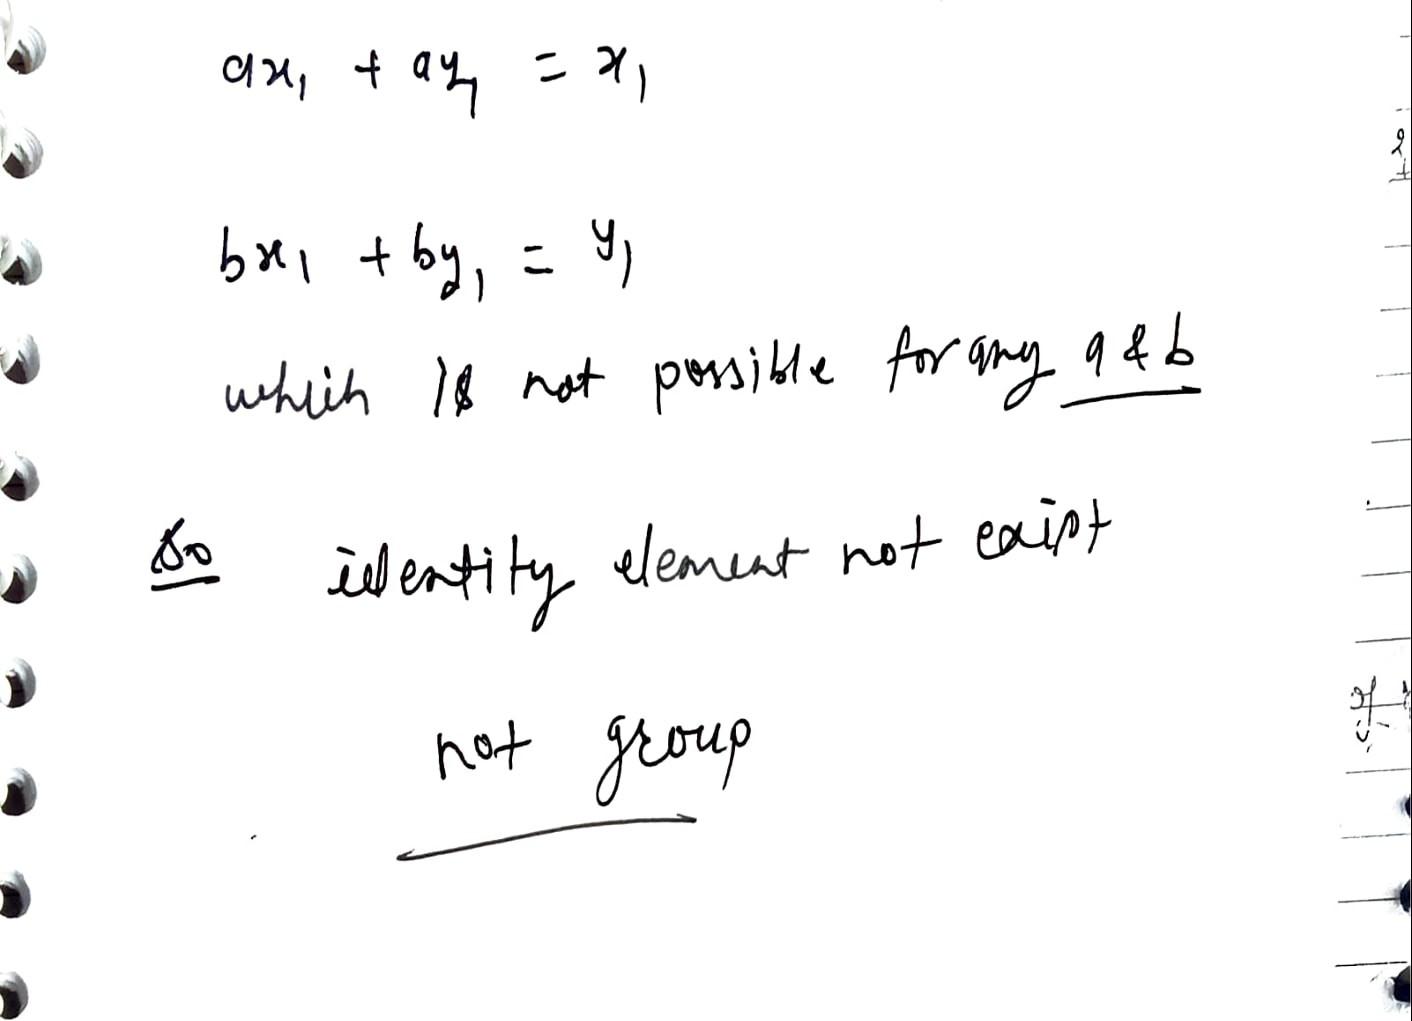 ax₁ + ay₁ = x₁
bx₁ + by₁ = y₁
which is not possible for any a & b
So identity element not exist
not group